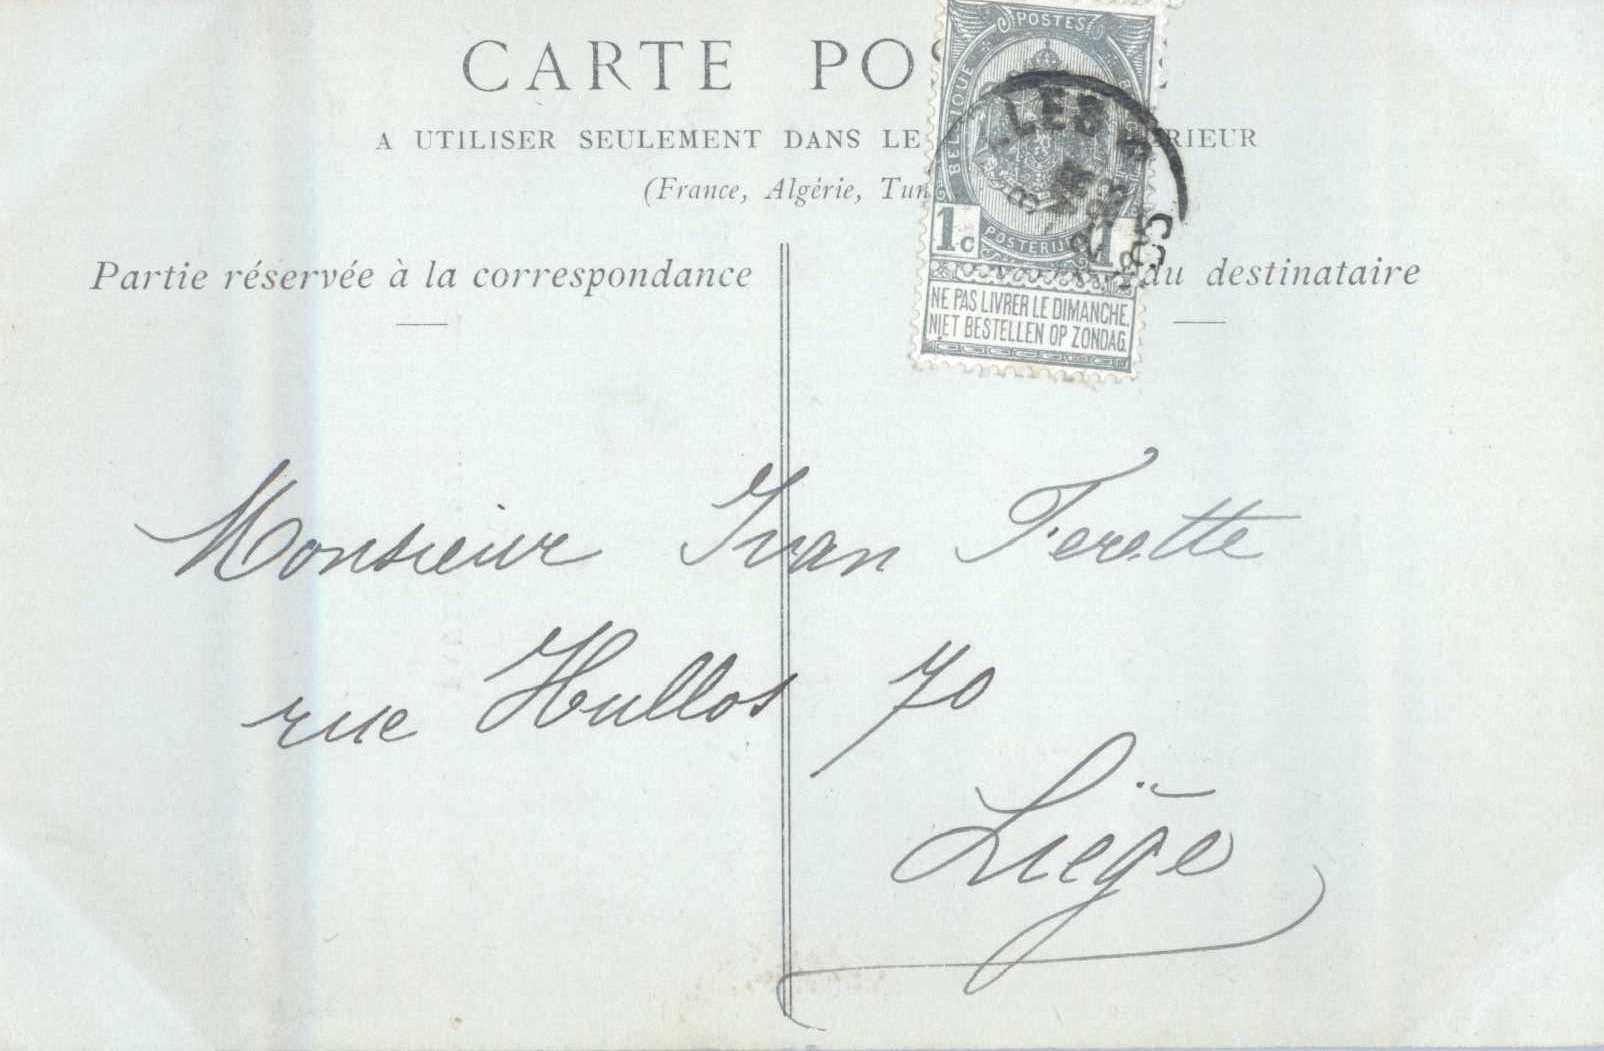 CARTE POS
A UTILISER SEULEMENT DANS LE RIEUR
(France, Algérie, Tun
Partie réservée à la correspondance
du destinataire
POSTES
BELGIQUE
1c POSTERIJ 1
NE PAS LIVRER LE DIMANCHE.
NIET BESTELLEN OP ZONDAG.
LES
Monsieur Ivan Ferette
rue Hullos 70
Liège